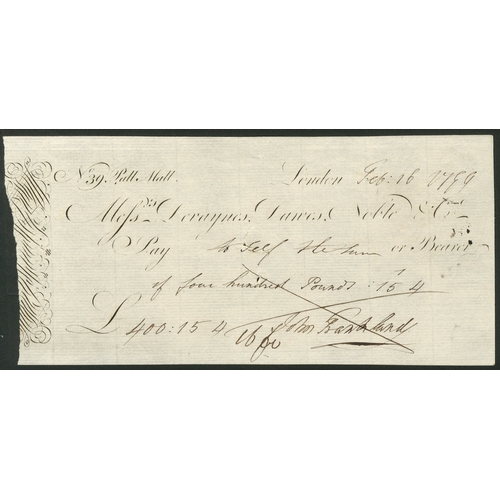 No. 39. Pall Mall. London Feb: 16 1799
Mess.rs Devaynes, Dawes, Noble & Co.
Pay to Self the sum or Bearer
of four hundred Pounds : 15 4
£ 400 : 15 4 16 Fe John Frankland